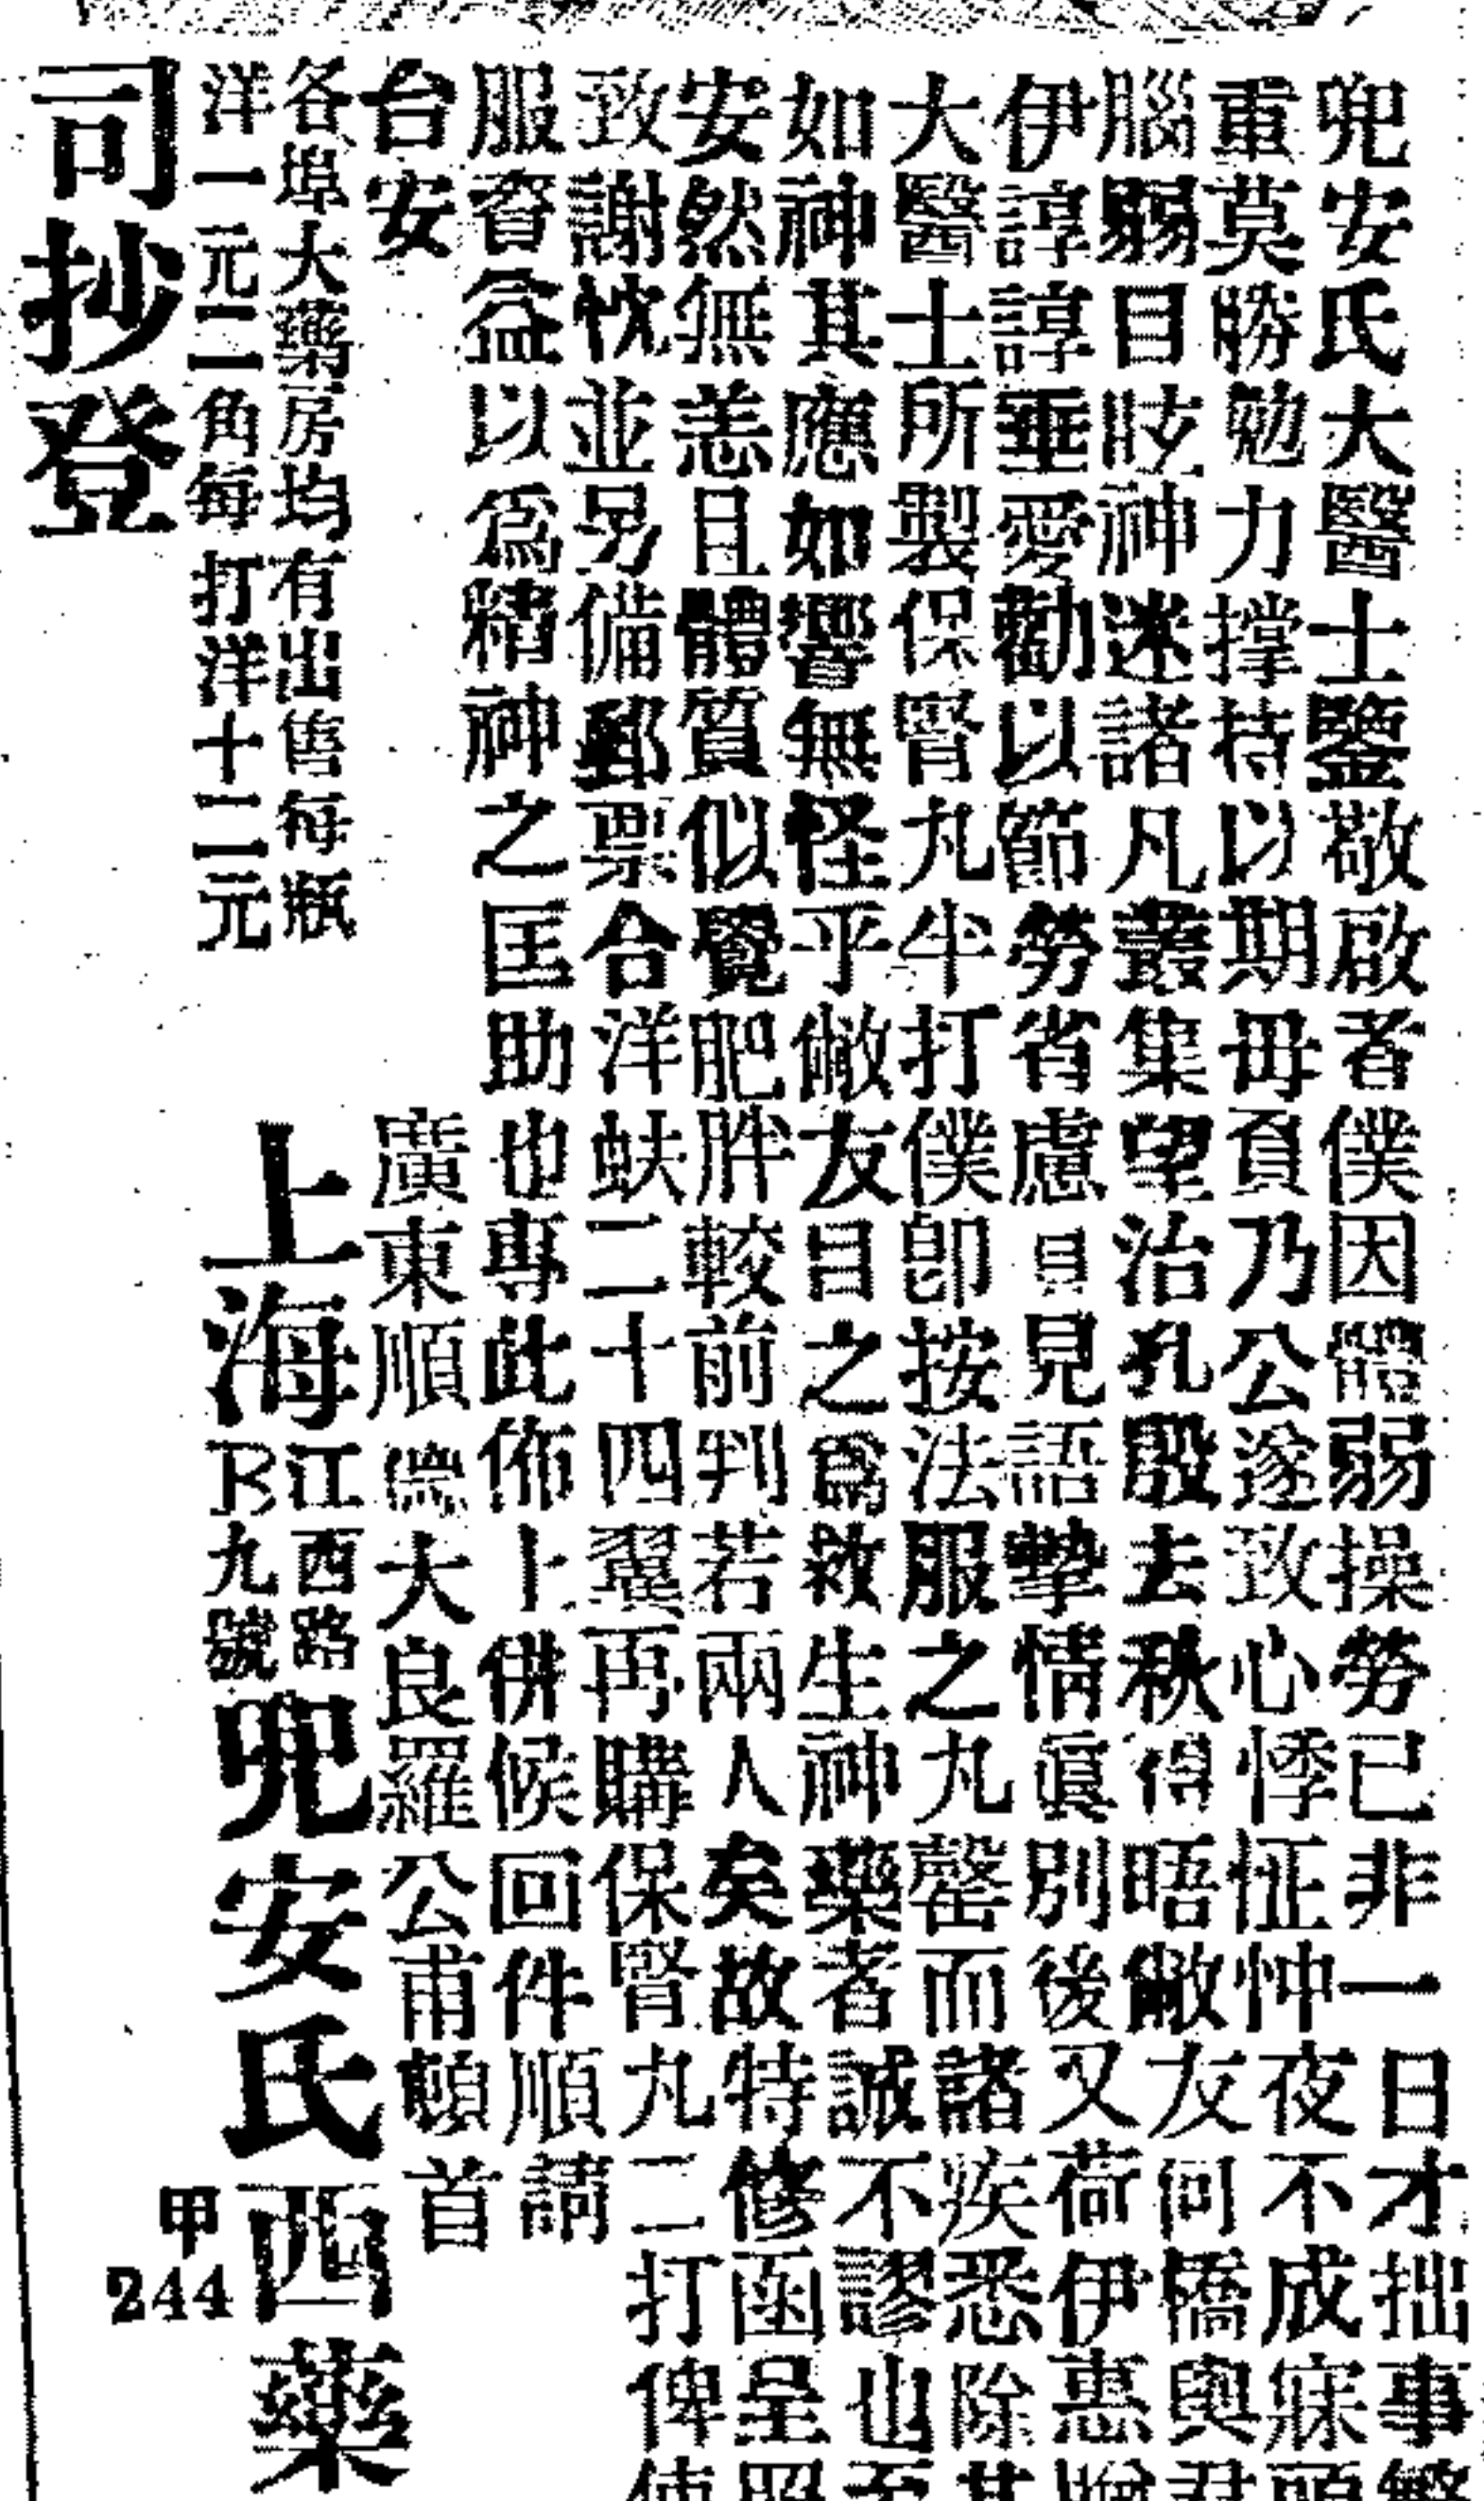 兜安氏大醫士鑒敬啟者僕因體弱操勞已非一日才拙事繁
重莫勝勉力撐持以期毋負乃公遂致心悸怔忡夜不成寐頭
腦弱目眩神迷諸凡叢集望治孔殷去秋得晤敝友何橋與君
伊諄諄垂愛勸以節勞省慮具見語摯情眞別後又荷伊惠贈
大醫士所製保腎丸半打僕卽按法服之丸罄而諸疾悉除其
如神其應如響無怪乎敝友目之爲救生神藥者誠不謬也至
安然無恙且體質似覺肥胖較前判若兩人矣故特修函呈照
致謝忱並另備郵票合洋蚨二十四翼再購保腎丸二打俾使
服資益以爲精神之匡助也專此佈 上倂候回件順請
台安 廣東順德大良羅公甫頓首
各埠大藥房均有出售每瓶
洋一元二角每打洋十二元
上海江西路B九號兜安氏西藥
司抄登
甲244